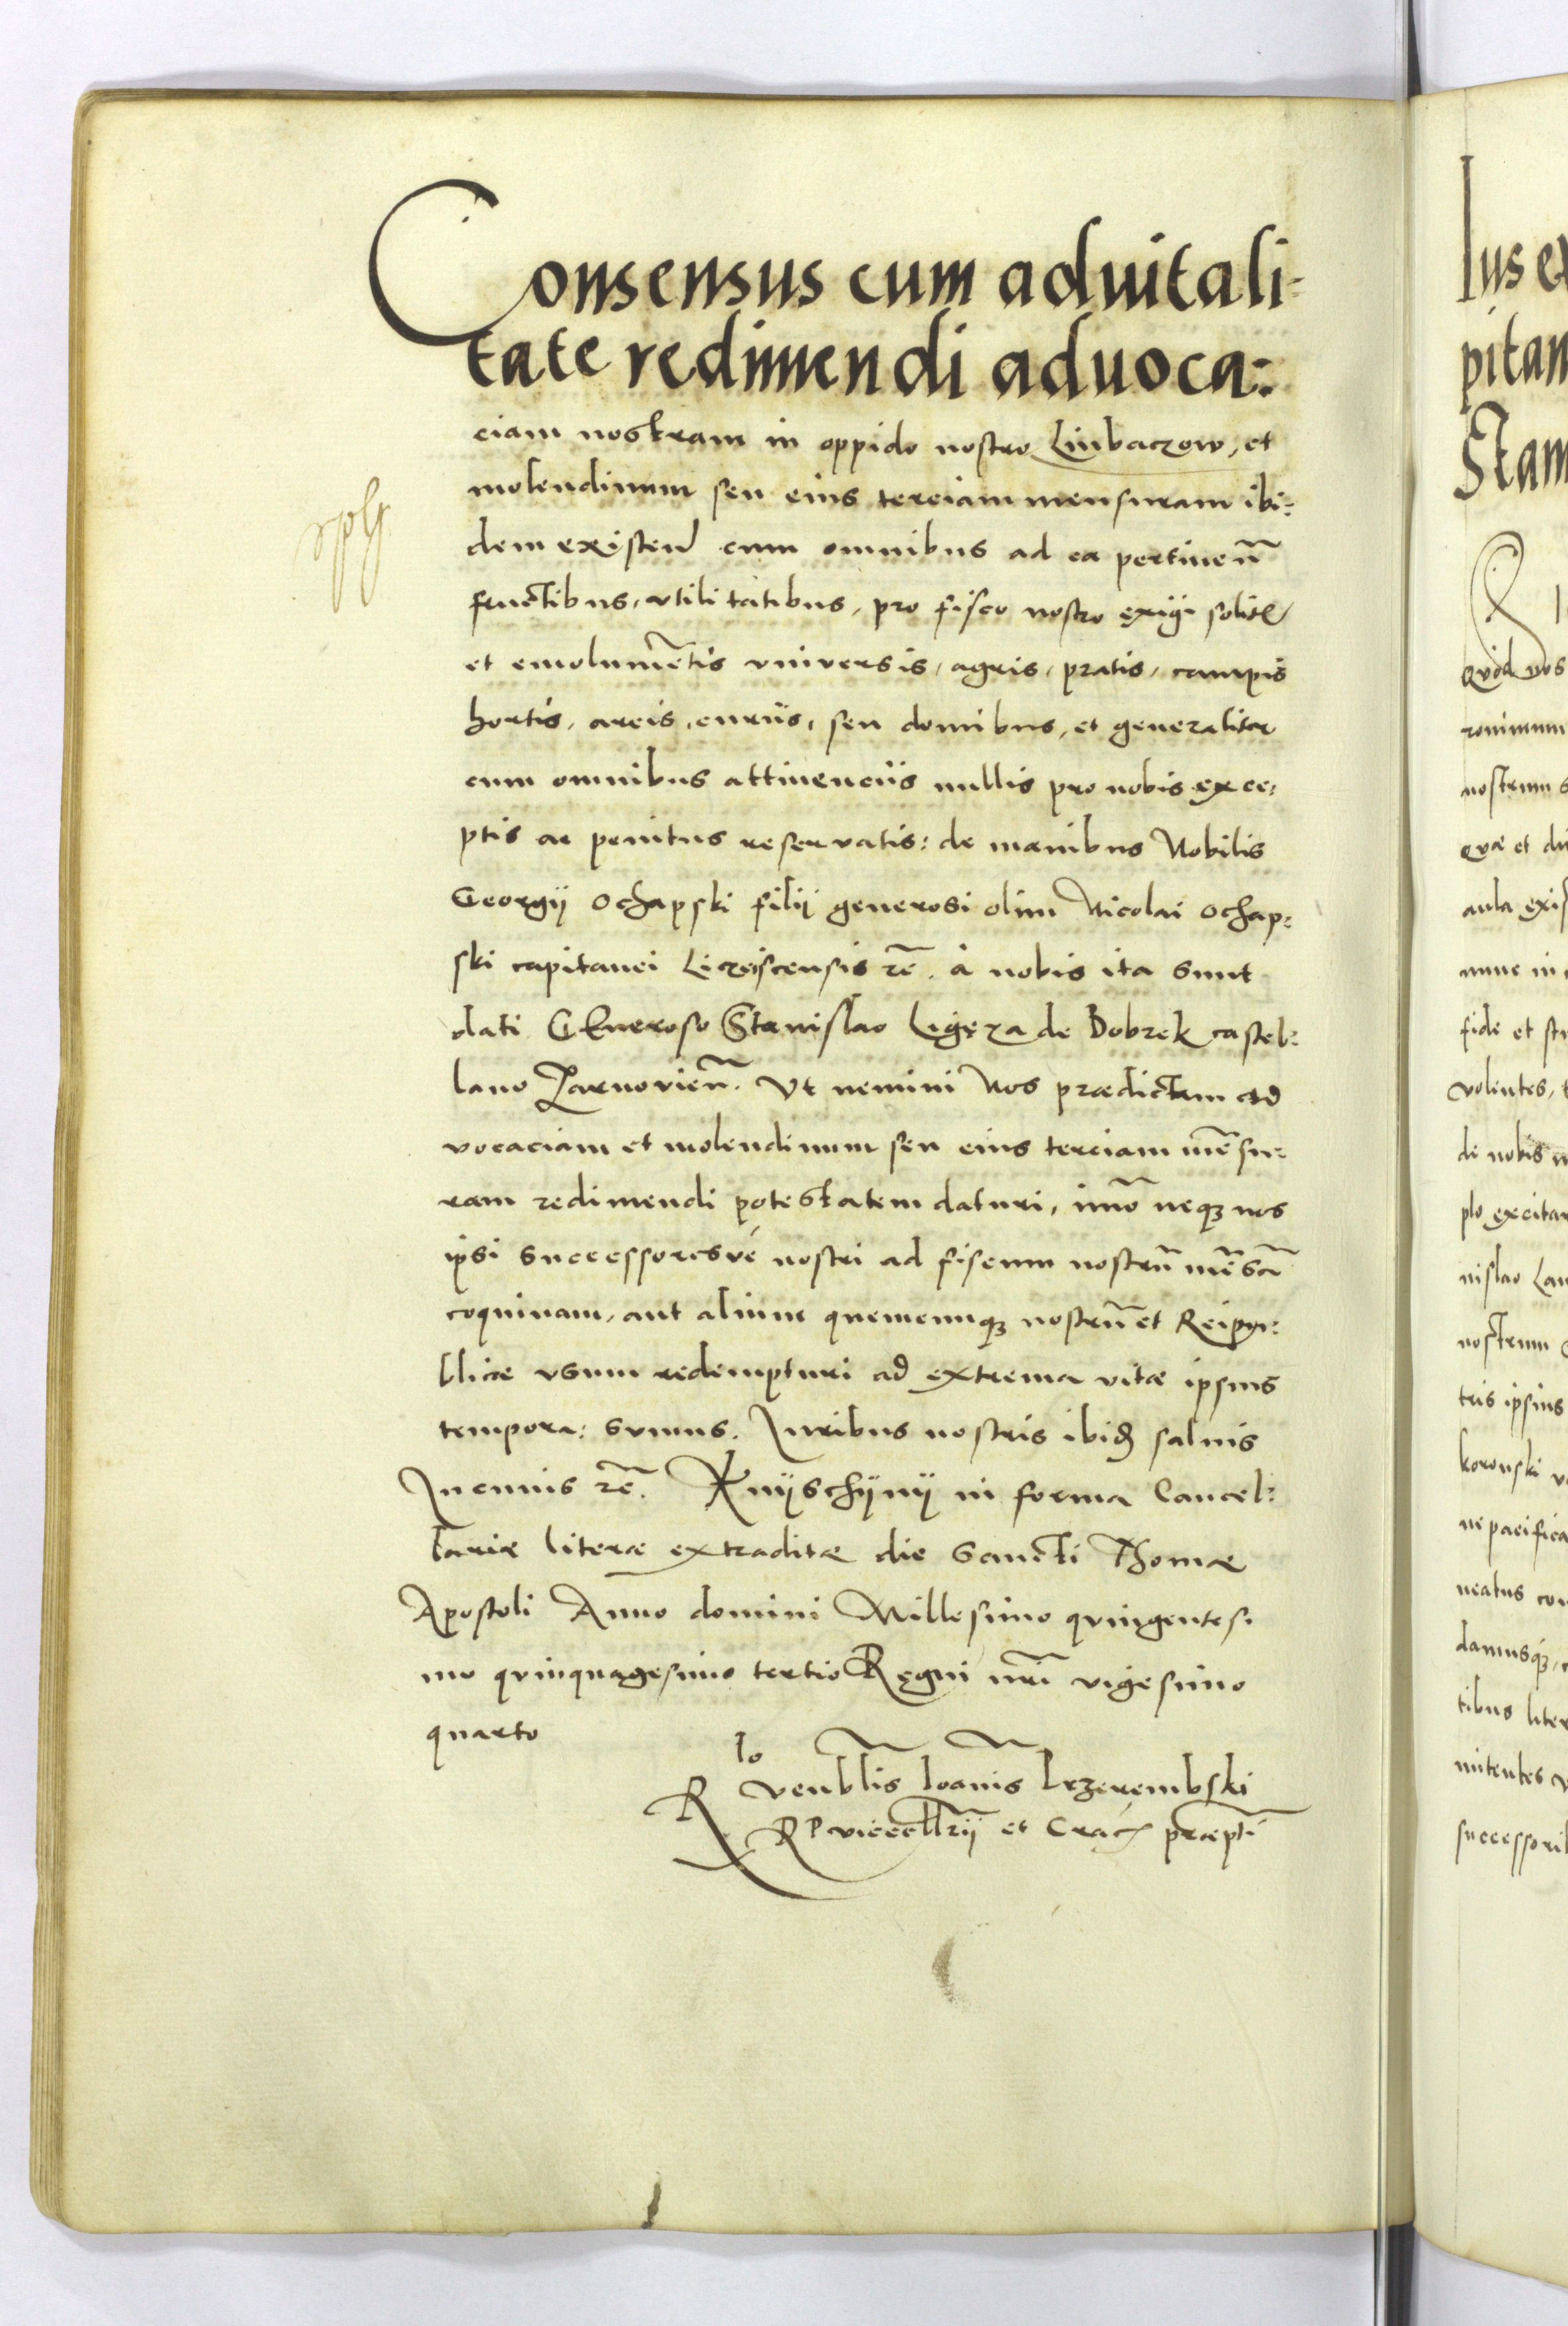 Consensus cum aduitali-
tate redimendi aduoca:
ciam nostram in oppido nostro Liubaczow, et
molendinum seu eius terciam mensuram ibi:
dem existen cum omnibus ad ea pertinen̄
fructibus, vtilitatibus, pro fisco nostro exigi solit
et emolumētis vniversis, agris, pratis, campis
hortis, areis, curiis, seu domibus, et generaliter
cum omnibus attinenciis nullis pro nobis exce:
ptis ac penitus reservatis: de manibus Nobilis
Georgij Ochapski filij generosi olim Nicolai Ochap:
ski capitanei rē. a nobis ita sunt
dati Generoso Stanislao Ligęza de Bobrek castel:
lano Zarnovien̄. Vt nemini Nos prædictam ad
vocaciam et molendinum seu eius terciam mēsu:
ram redimendi potestatem daturi, imō neqȝ nos
ipsi Successoresvé nostri ad fiscum nostrū mēsā
coquinam, aut alium quemcunqȝ nostrū et Reipu:
blicæ vsum redempturi ad extrema vitæ ipsius
tempora: sumus. Iuribus nostris ibid salvis
In cuius rē. Knijschijnij in forma Cancel:
lariæ literæ extraditæ die Sancti Thomæ
Apostoli Anno domini Millesimo quingentesi
mo quinquagesimo tertio Regni nr̄i vigesimo
quarto
Io
R venblis Ioanis Przerembski
RP viceclrij et Crac præpti
Ius ex
pitan
Stam
Quod nos
ronimum
nostrum s
quæ et di
aula exis
nunc in
fide et
volentes,
de nobis
plo excitar
nislao Lan
nostrum
tris ipsius
koronski
ne pacifica
neatus con
damusqȝ,
tibus liter
mitentes
successorib